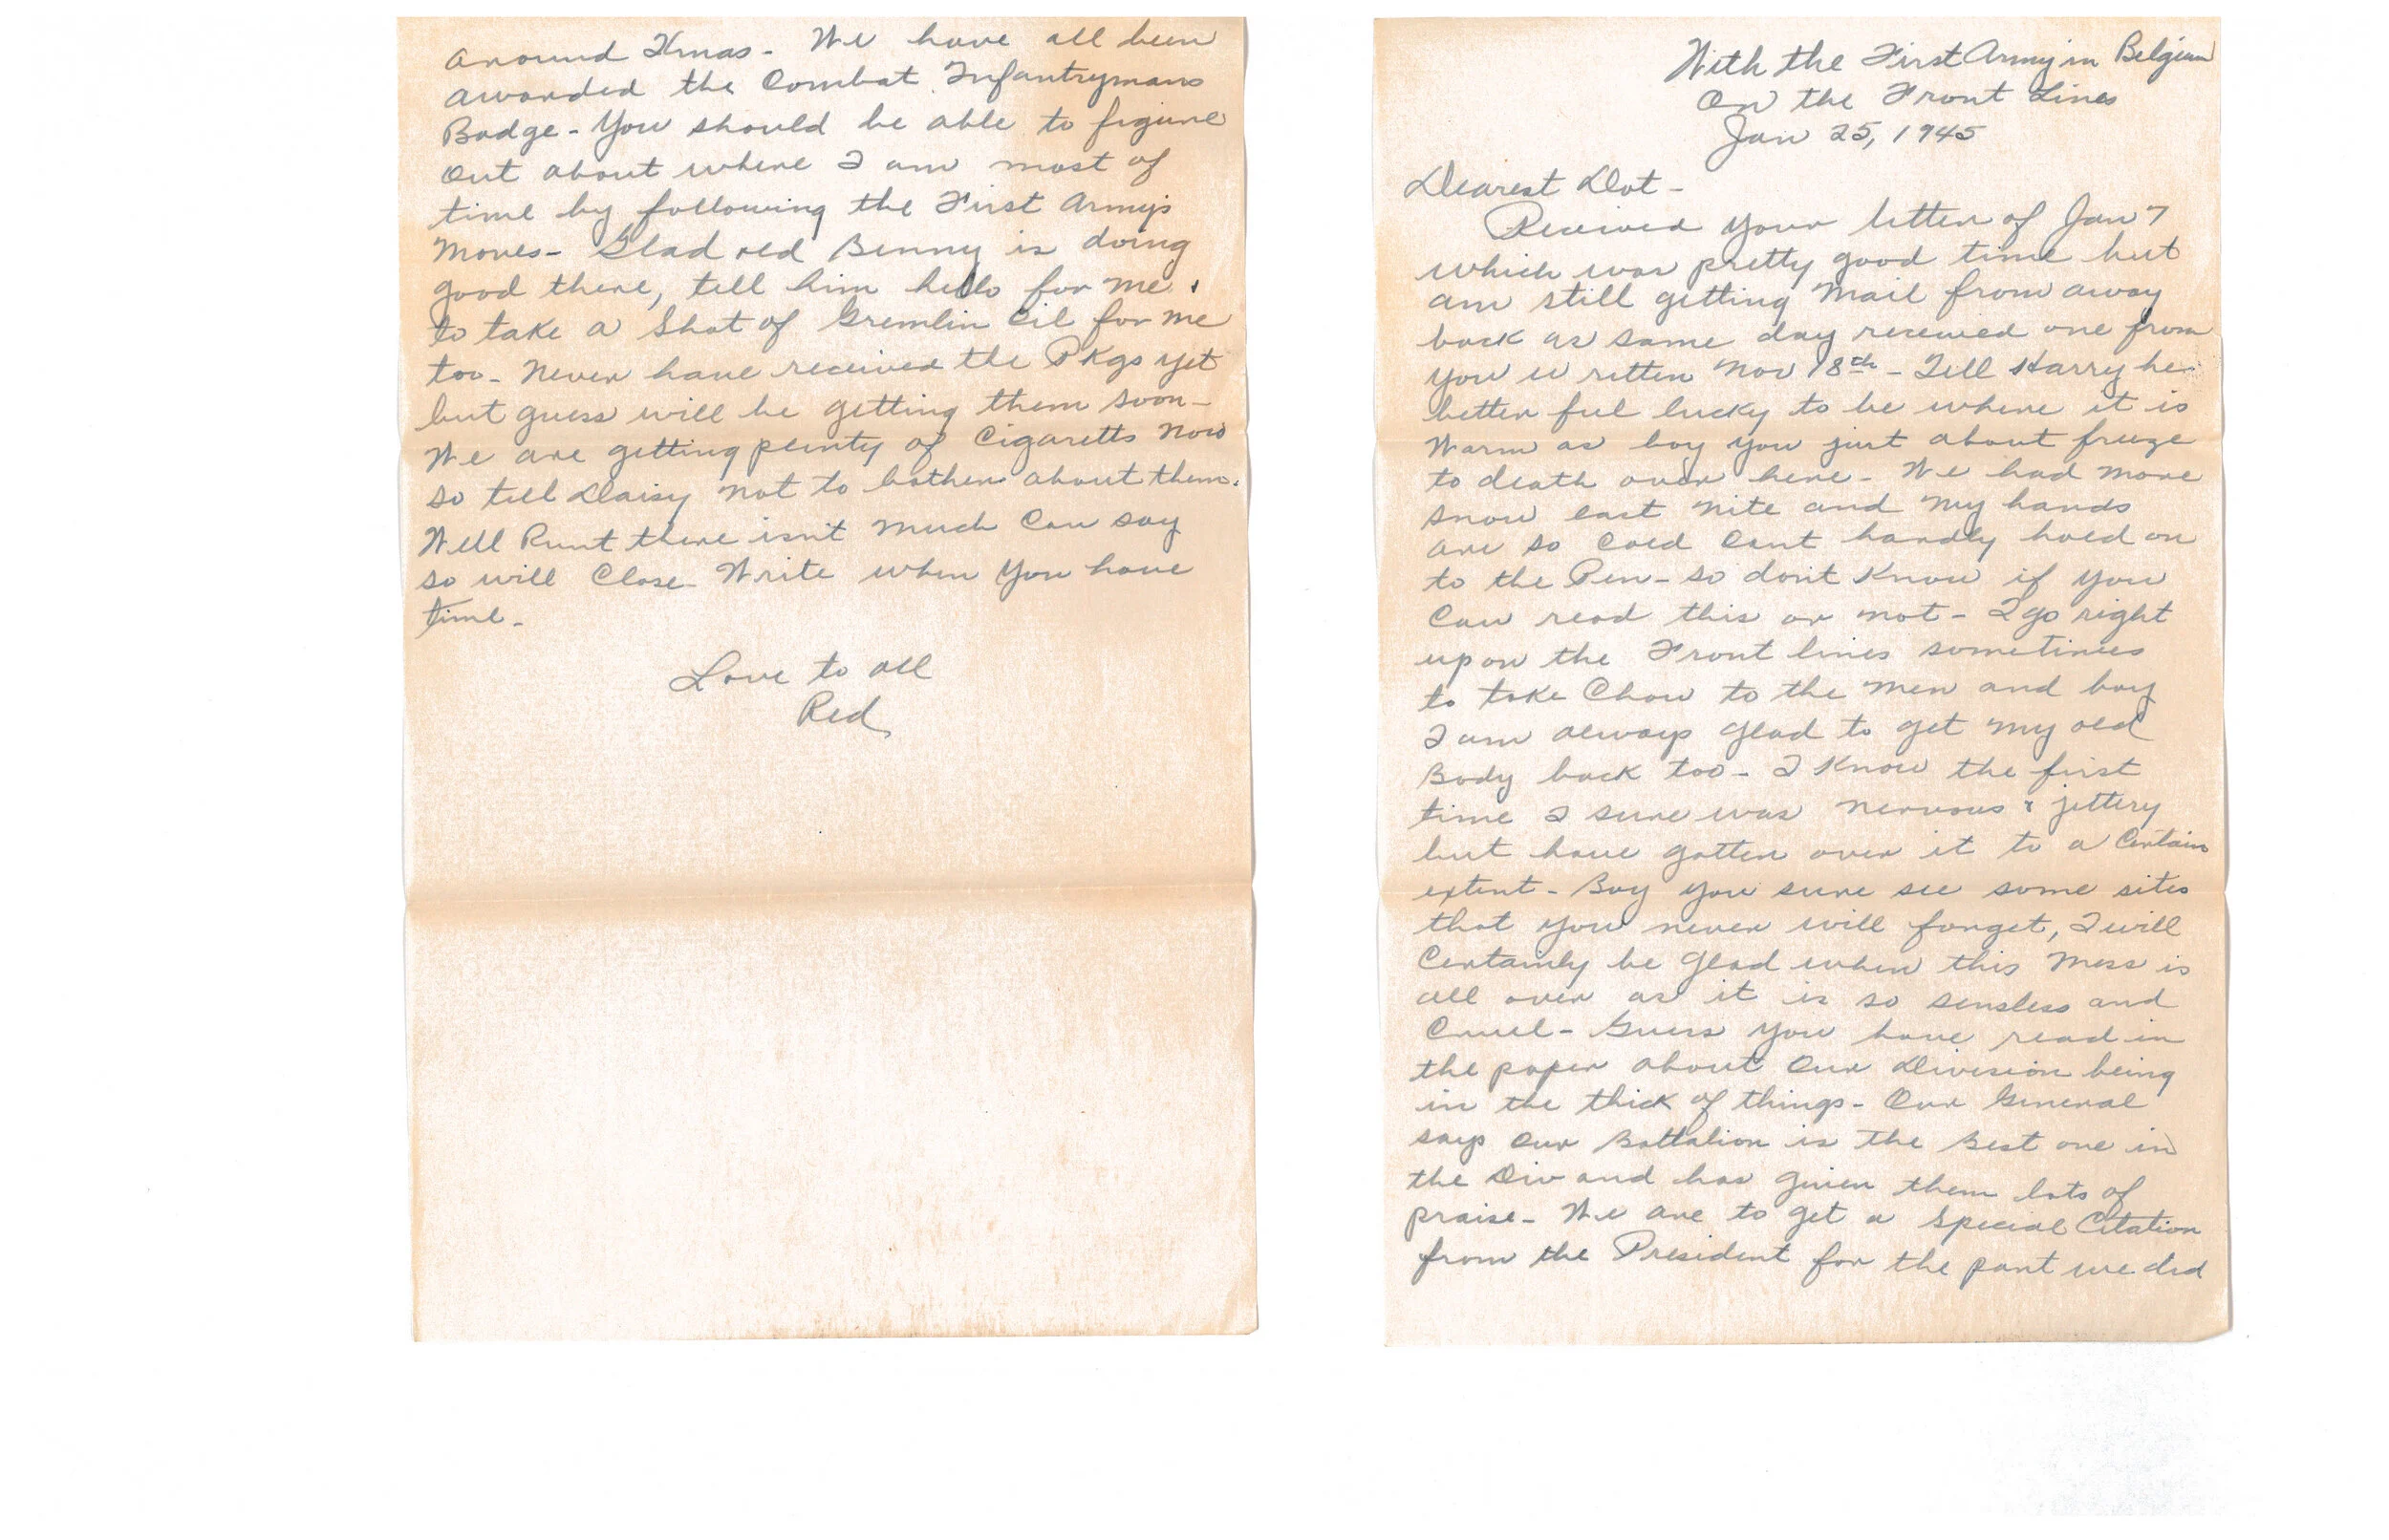 With the First Army in Belgium
On the Front Lines
Jan 25, 1945
Dearest Dot -
Received your letter of Jan 7
which was pretty good time but
am still getting mail from away
back as same day received one from
you written Nov 18th - Tell Harry he
better feel lucky to be where it is
warm as boy you just about freeze
to death over here - We had more
snow last nite and my hands
are so cold cant hardly hold on
to the Pen - so don't know if you
can read this or not - I go right
up on the Front lines sometimes
to take Chow to the men and boy
I am always glad to get my old
Body back too - I know the first
time I sure was nervous & jittery
but have gotten over it to a certain
extent - Boy you sure see some sites
that you never will forget, I will
Certainly be glad when this mess is
all over as it is so sensless and
Cruel - Guess you have read in
the paper about Our Division being
in the thick of things - Our General
says our Battalion is the Best one in
the Div and has given them lots of
praise - We are to get a Special Citation
from the President for the part we did
around Xmas - We have all been
awarded the Combat Infantrymans
Badge - You should be able to figure
out about where I am most of
time by following the First Army's
moves - Glad old Benny is doing
good there, tell him hello for me &
to take a Shot of Gremlin Oil for me
too - Never have received the Pkgs yet
but guess will be getting them soon -
We are getting plenty of Cigaretts now
so tell Daisy not to bother about them.
Well Runt there isn't much can say
so will Close - Write when you have
time -
Love to all
Red